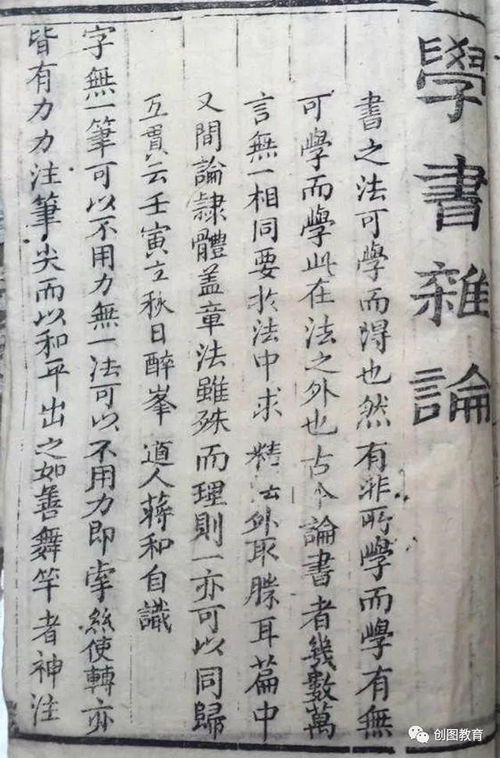 學書雜論
書之法可學而得也然有非所學而學有無
可學而學此在法之外也古今論書者幾數萬
言無一相同要於法中求精法外取勝耳篇中
又間論隸體蓋章法雖殊而理則一亦可以同歸
互貫云壬寅立秋日醉峯道人蔣和自識
字無一筆可以不用力無一法可以不用力即牽絲使轉亦
皆有力力注筆尖而以和平出之如善舞竿者神注
创图教育